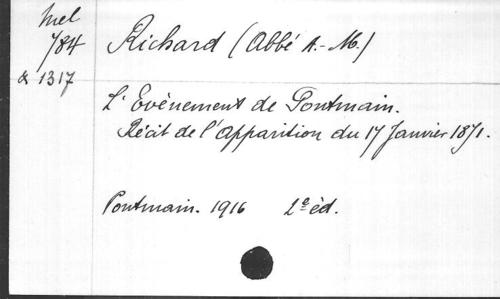 Mel
784
& 1317
Richard (Abbé A.-M.)
L'Evènement de Pontmain.
Récit de l'Apparition du 17 Janvier 1871.
Pontmain. 1916 2e éd.